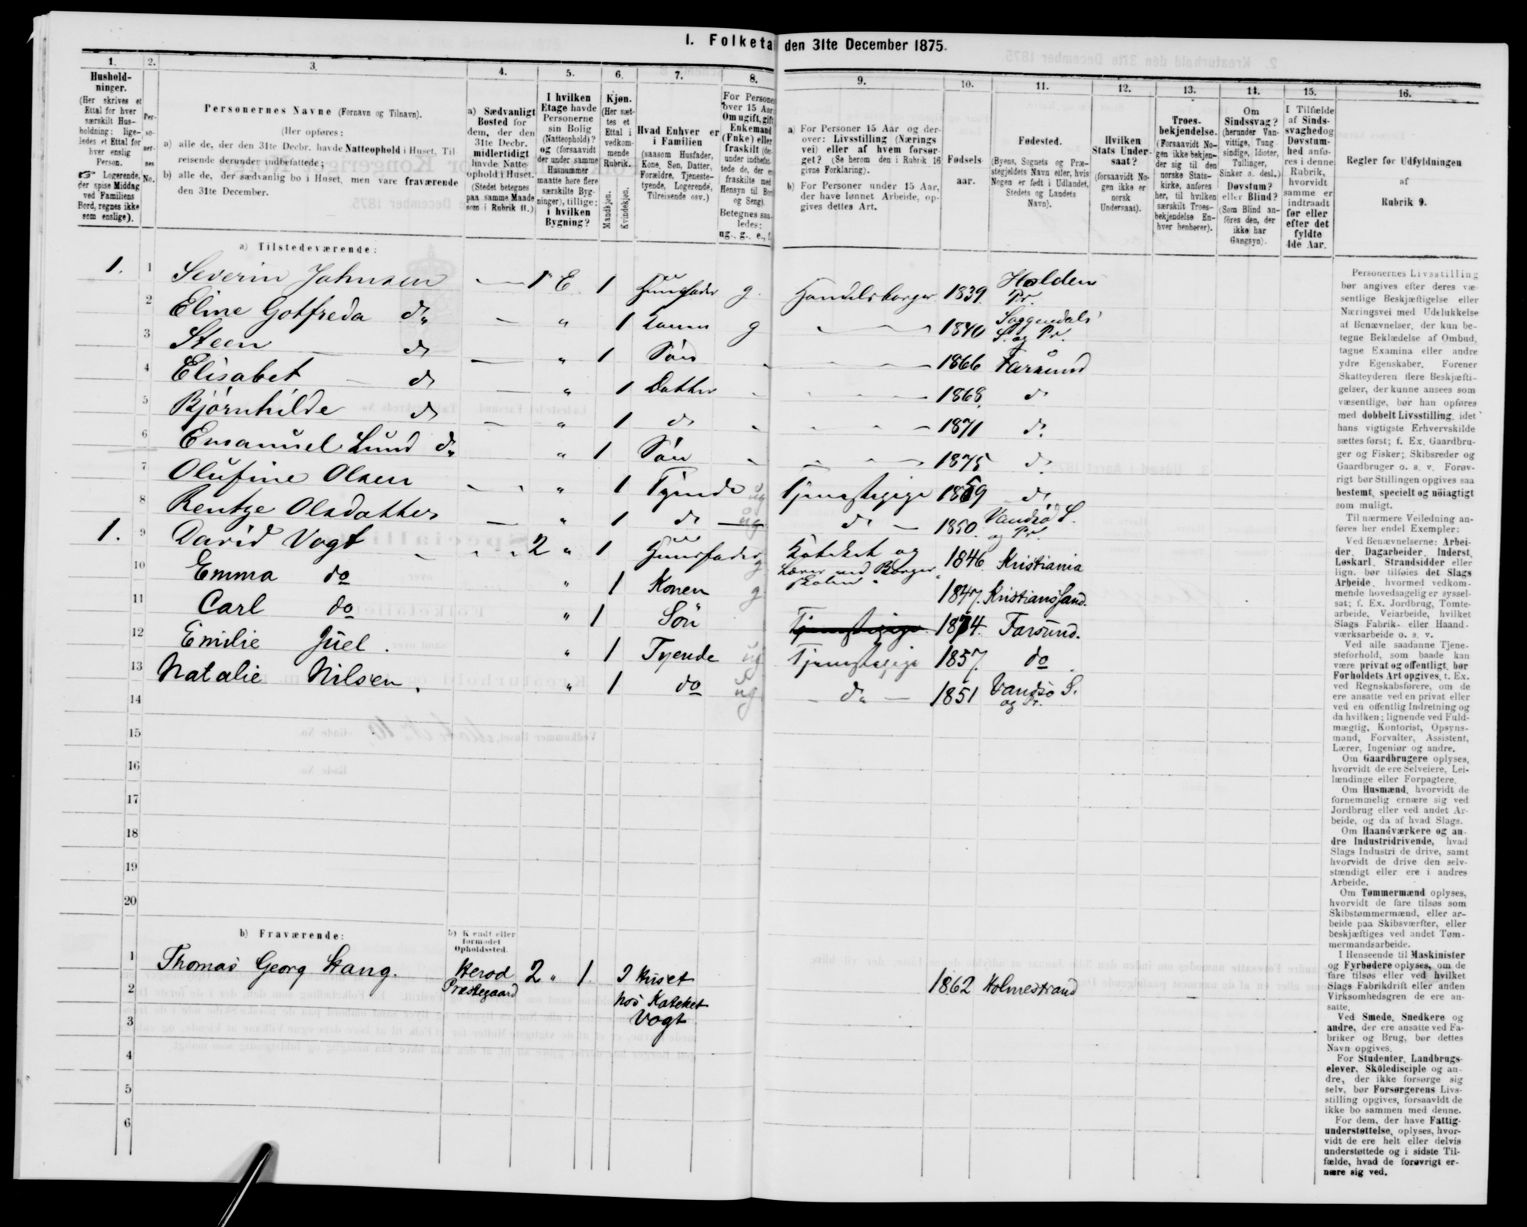 I. Folketa den 31te December 1875.
1. 2. 3. 4. 5. 6. 7. 8. 9. 10. 11. 12. 13. 14. 15. 16.
Hushold-
ninger.
(Her skrives et
Ettal for hver
særskilt Hus-
holdning; lige-
ledes et Ettal for
hver enslig
Person.
☞ Logerende,
der spise Middag
ved Familiens
Bord, regnes ikke
som enslige).
Per-
so-
ner-
nes
No.
Personernes Navne (Fornavn og Tilnavn).
(Her opføres:
a) alle de, der den 31te Decbr. havde Natteophold i Huset, Til-
reisende derunder indbefattede;
b) alle de, der sædvanlig bo i Huset, men vare fraværende
den 31te December.
a) Sædvanligt
Bosted for
dem, der den
31te Decbr.
midlertidigt
havde Natte-
ophold i Huset.
(Stedet betegnes
paa samme Maade
som i Rubrik 11.)
I hvilken
Etage havde
Personerne
sin Bolig
(Natteophold)?
og (forsaavidt
der under samme
Husnummer
maatte høre flere
særskilte Byg-
ninger), tillige:
i hvilken
Bygning?
Kjøn.
(Her sæt-
tes et
Ettal i
vedkom-
mende
Rubrik.)
Mandkjøn.
Kvindekjøn.
Hvad Enhver er
i Familien
(saasom Husfader,
Kone, Søn, Datter,
Forældre, Tjeneste-
tyende, Logerende,
Tilreisende osv.)
For Persone
over 15 Aar
Om ugift, gift
Enkemand
(Enke) eller
fraskilt (de
under indbefat-
tede de, der er
fraskilte med
Hensyn til Bor
og Seng).
Betegnes saa-
ledes:
ug., g., e., f.
a) For Personer 15 Aar og der-
over: Livsstilling (Nærings
vei) eller af hvem forsør-
get? (Se herom den i Rubrik 16
givne Forklaring).
b) For Personer under 15 Aar,
der have lønnet Arbeide, op-
gives dettes Art.
Fødsels
aar.
Fødested.
(Byens, Sognets og Præ-
stegjeldets Navn eller, hvis
Nogen er født i Udlandet,
Stedets og Landets
Navn).
Hvilken
Stats Under-
saat?
(forsaavidt No-
gen ikke er
norsk
Undersaat).
Troes-
bekjendelse.
(Forsaavidt No-
gen ikke bekjen-
der sig til den
norske Stats-
kirke, anføres
her, til hvilken
særskilt Troes-
bekjendelse En-
hver henhører).
Om
Sindssvag?
(herunder Van-
vittige, Tung-
sindige, Idioter,
Tullinger,
Sinker o. desl.)
Døvstum?
eller Blind?
(Som Blind an-
føres den, der
ikke har
Gangsyn).
I Tilfælde
af Sinds-
svaghed og
Døvstum-
hed anfø-
res i denne
Rubrik,
hvorvidt
samme er
indtraadt
før eller
efter det
fyldte
4de Aar.
Regler for Udfyldningen
af
Rubrik 9.
a) Tilstedeværende:
1. 1 Severin Johnsen 1 E 1 Huusfader g. Handelsborger 1839 Holden Pr.
2 Eline Gotfreda do „ 1 Konen g 1840 Soggendals S. og Pr.
3 Steen do „ 1 Søn 1866 Farsund
4 Elisabet do „ 1 Datter 1868 do
5 Bjørnhilde do „ 1 do 1871 do
6 Emanuel Lund do „ 1 Søn 1875 do
7 Olufine Olsen „ 1 Tyende ug Tjenestepige 1859 do
8 Rentze Olsdatter „ 1 do ug do 1850 Vandsø S. og Pr.
1. 9 David Vogt 2 „ 1 Huusfader g Kateket og Lærer ved Borger skolen 1846 Kristiania
10 Emma do „ 1 Konen g 1847 Kristianssand.
11 Carl do „ 1 Søn Tjenestepige 1874. Farsund.
12 Emilie Juel. „ 1 Tyende ug Tjenestepige 1857 do
13 Natalie Nilsen. „ 1 do ug do 1851 Vandsø S. og Pr.
14
15
16
17
18
19
20
b) Fraværende:
b) Kjendt eller
formodet
Opholdssted.
1 Thomas Georg Stang. Herod Præstegaard 2 „ 1. I Huset hos Kateket Vogt 1862 Holmestrand
2
3
4
5
6
Personernes Livsstilling
bør angives efter deres væ-
sentlige Beskjæftigelse eller
Næringsvei med Udelukkelse
af Benævnelser, der kun be-
tegne Beklædelse af Ombud,
tagne Examina eller andre
ydre Egenskaber. Forener
Skatteyderen flere Beskjæfti-
gelser, der kunne ansees som
væsentlige, bør han opføres
med dobbelt Livsstilling, idet
hans vigtigste Erhvervskilde
sættes først; f. Ex. Gaardbru-
ger og Fisker; Skibsreder og
Gaardbruger o. s. v. Forøv-
rigt bør Stillingen opgives saa
bestemt, specielt og nøiagtigt
som muligt.
Til nærmere Veiledning an-
føres her endel Exempler:
Ved Benævnelserne: Arbei-
der, Dagarbeider, Inderst,
Løskarl, Strandsidder eller
lign. bør tilføies det Slags
Arbeide, hvormed vedkom-
mende hovedsagelig er syssel-
sat; f. Ex. Jordbrug, Tomte-
arbeide, Veiarbeide, hvilket
Slags Fabrik- eller Haand-
værksarbeide o. s. v.
Ved alle saadanne Tjene-
steforhold, som baade kan
være privat og offentligt, bør
Forholdets Art opgives, t. Ex.
ved Regnskabsførere, om de
ere ansatte ved en privat eller
ved en offentlig Indretning og
da hvilken; lignende ved Fuld-
mægtig, Kontorist, Opsyns-
mand, Forvalter, Assistent,
Lærer, Ingeniør og andre.
Om Gaardbrugere oplyses,
hvorvidt de ere Selveiere, Lei-
lændinge eller Forpagtere.
Om Husmænd, hvorvidt de
fornemmelig ernære sig ved
Jordbrug eller ved andet Ar-
beide, og da af hvad Slags.
Om Haandværkere og an-
dre Industridrivende, hvad
Slags Industri de drive, samt
hvorvidt de drive den selv-
stændigt eller ere i andres
Arbeide.
Om Tømmermænd oplyses,
hvorvidt de fare tilsøs som
Skibstømmermænd, eller ar-
beide paa Skibsværfter, eller
beskjæftiges ved andet Tøm-
mermandsarbeide.
I Henseende til Maskinister
og Fyrbødere oplyses, om de
fare tilsøs eller ved hvilket
Slags Fabrikdrift eller anden
Virksomhedsgren de ere an-
satte.
Ved Smede, Snedkere og
andre, der ere ansatte ved Fa-
briker og Brug, bør dettes
Navn opgives.
For Studenter, Landbrugs-
elever, Skoledisciple og an-
dre, der ikke forsørge sig
selv, bør Forsørgerens Livs-
stilling opgives, forsaavidt de
ikke bo sammen med denne.
For dem, der have Fattig-
understøttelse, oplyses, hvor-
vidt de ere helt eller delvis
understøttede og i sidste Til-
fælde, hvad de forøvrigt er-
nære sig ved.